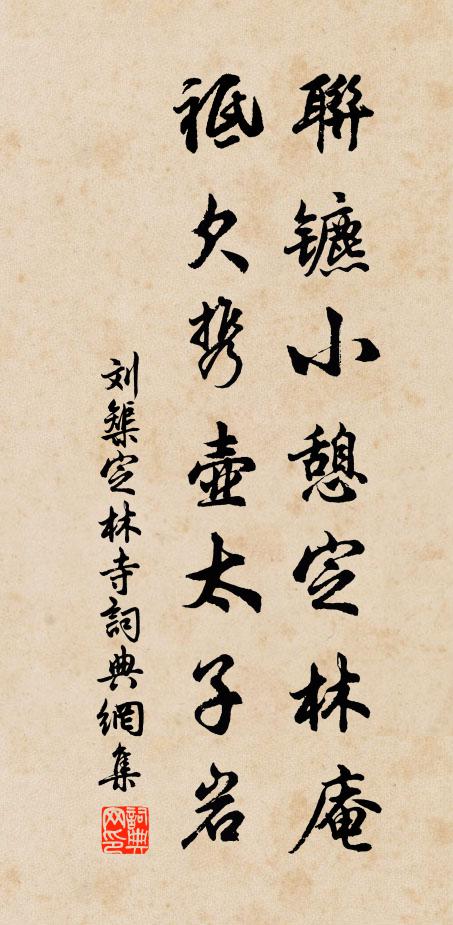 聯鑣小憩定林庵
祗欠携壺太子岩
刘榘定林寺詞典網集
詞典网印